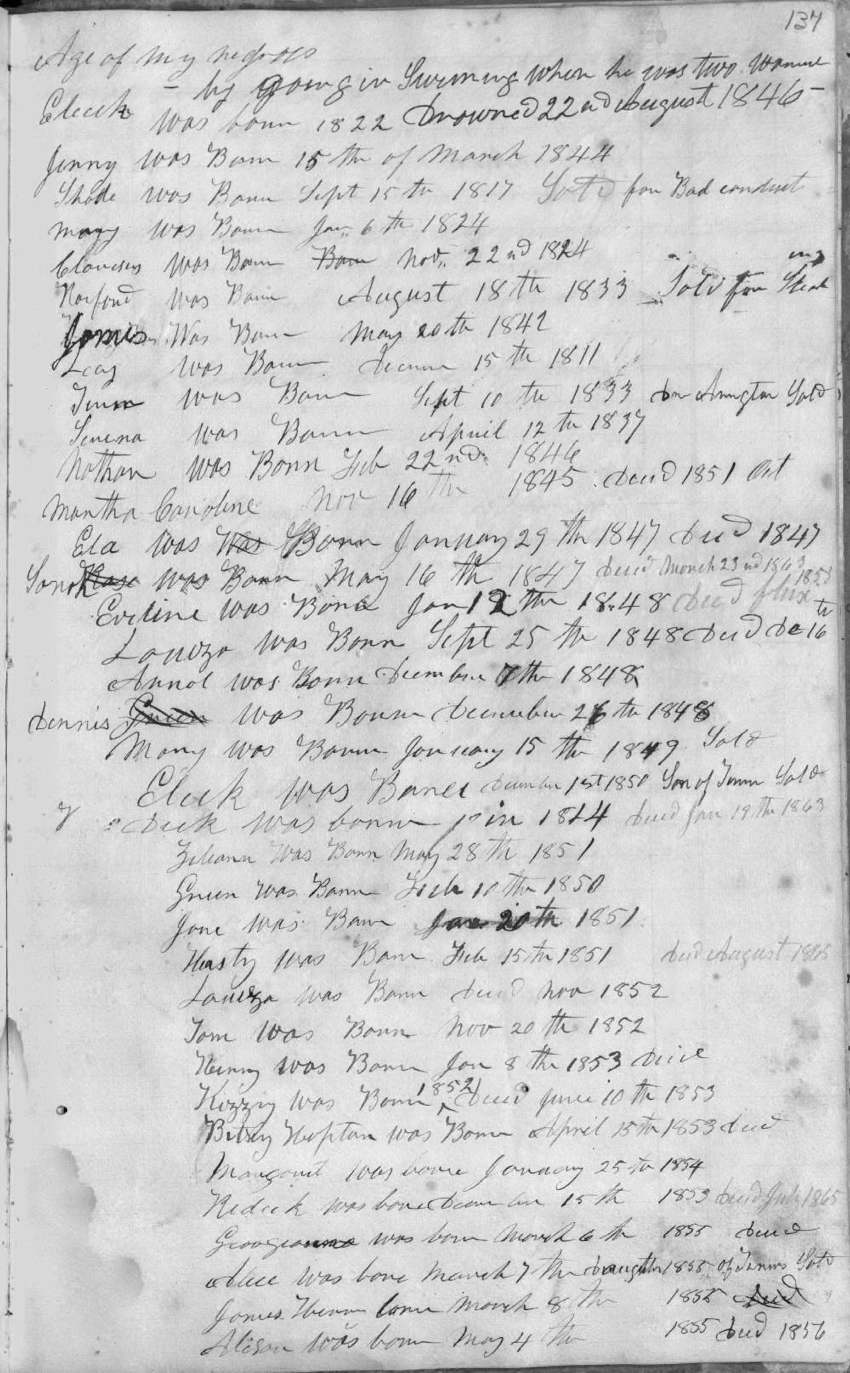 137
Age of my negroes
- by going in Swiming when he was two
Eleck was born 1822 Drowned 22nd August 1846-
Jenny was Born 15th of March 1844
was Born Sept 15th 1817 Sold for Bad conduct
Mary was Born Jan 6th 1824
was Born Born Nov. 22nd 1824
was Born August 18th 1833 Sold for Steal ing
James Was Born May 20th 1842
was Born 15th 1811
was Born Sept 10th 1833 Sold
Serena was Born April 12th 1837
Nathan was Born Feb 22nd 1846
Martha Caroline Nov 16th 1845 Deid 1851 Oct
Ela was Was Born January 29th 1847 Deid 1847
Sarah was Born May 16th 1847 Deid March 23nd 1863
1853
Eveline was Born Jan 12th 1848 Deid flux
Louiza was Born Sept 25th 1848 Deid De 16 th
was Born December 7th 1848
Dennis Green was Bourn December 26th 1848
Mary was Born January 15th 1849 Sold
Eleck was Born December 1st 1850 Son of Sold
Dick was born in 1814 Deid Jan 19th 1863
was Born May 28th 1851
Green was Born Feb 10th 1850
Jane was Born Jan 20th 1851
Hasty was Born Feb 15th 1851 Deid August 1865
Louiza was Born Deid Nov 1852
Tom was Born Nov 20th 1852
Henry was Born Jan 8th 1853
Kizzy was Born 1852 Deid June 10th 1853
Betsy Hoptan was Born April 15th 1853 Deid
Margaret was borne January 25th 1854
was bone 15th 1853 Deid July 1865
was born March 6th 1855 Deid
Alice was bone March 7th Daughter 1855 of Sold
James Henra borne March 8th 1855 Deid
was born May 4th 1855 Deid 1856